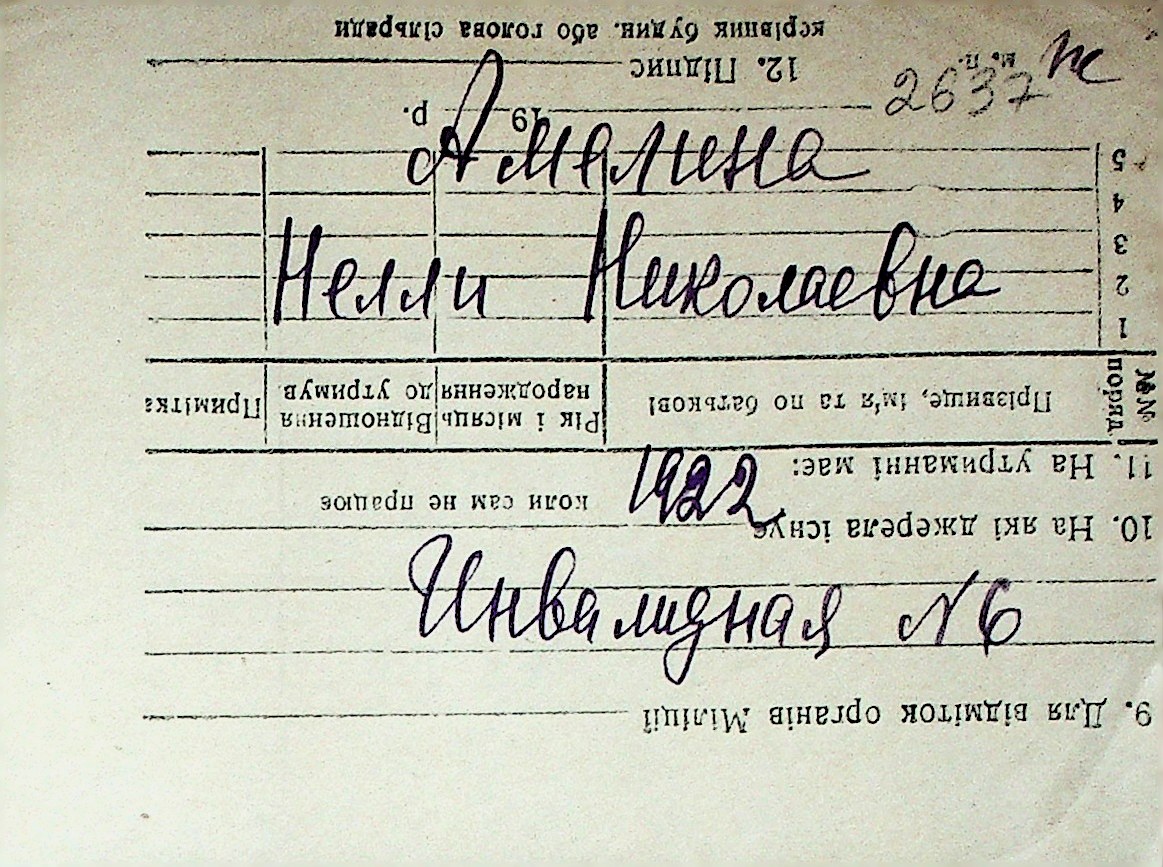 2637 н
Амелина
Нелли Николаевна
1922
Инвалидная N 6
9. Для відміток органів Міліції
10. На які джерела існує
коли сам не працює
11. На утриманні має:
№№ поряд.
Прізвище, ім'я та по батькові
Рік і місяць народження
Відношення до утримув.
Примітка
1
2
3
4
5
19 р.
м. п.
12. Підпис
керівник будин. або голова сільради